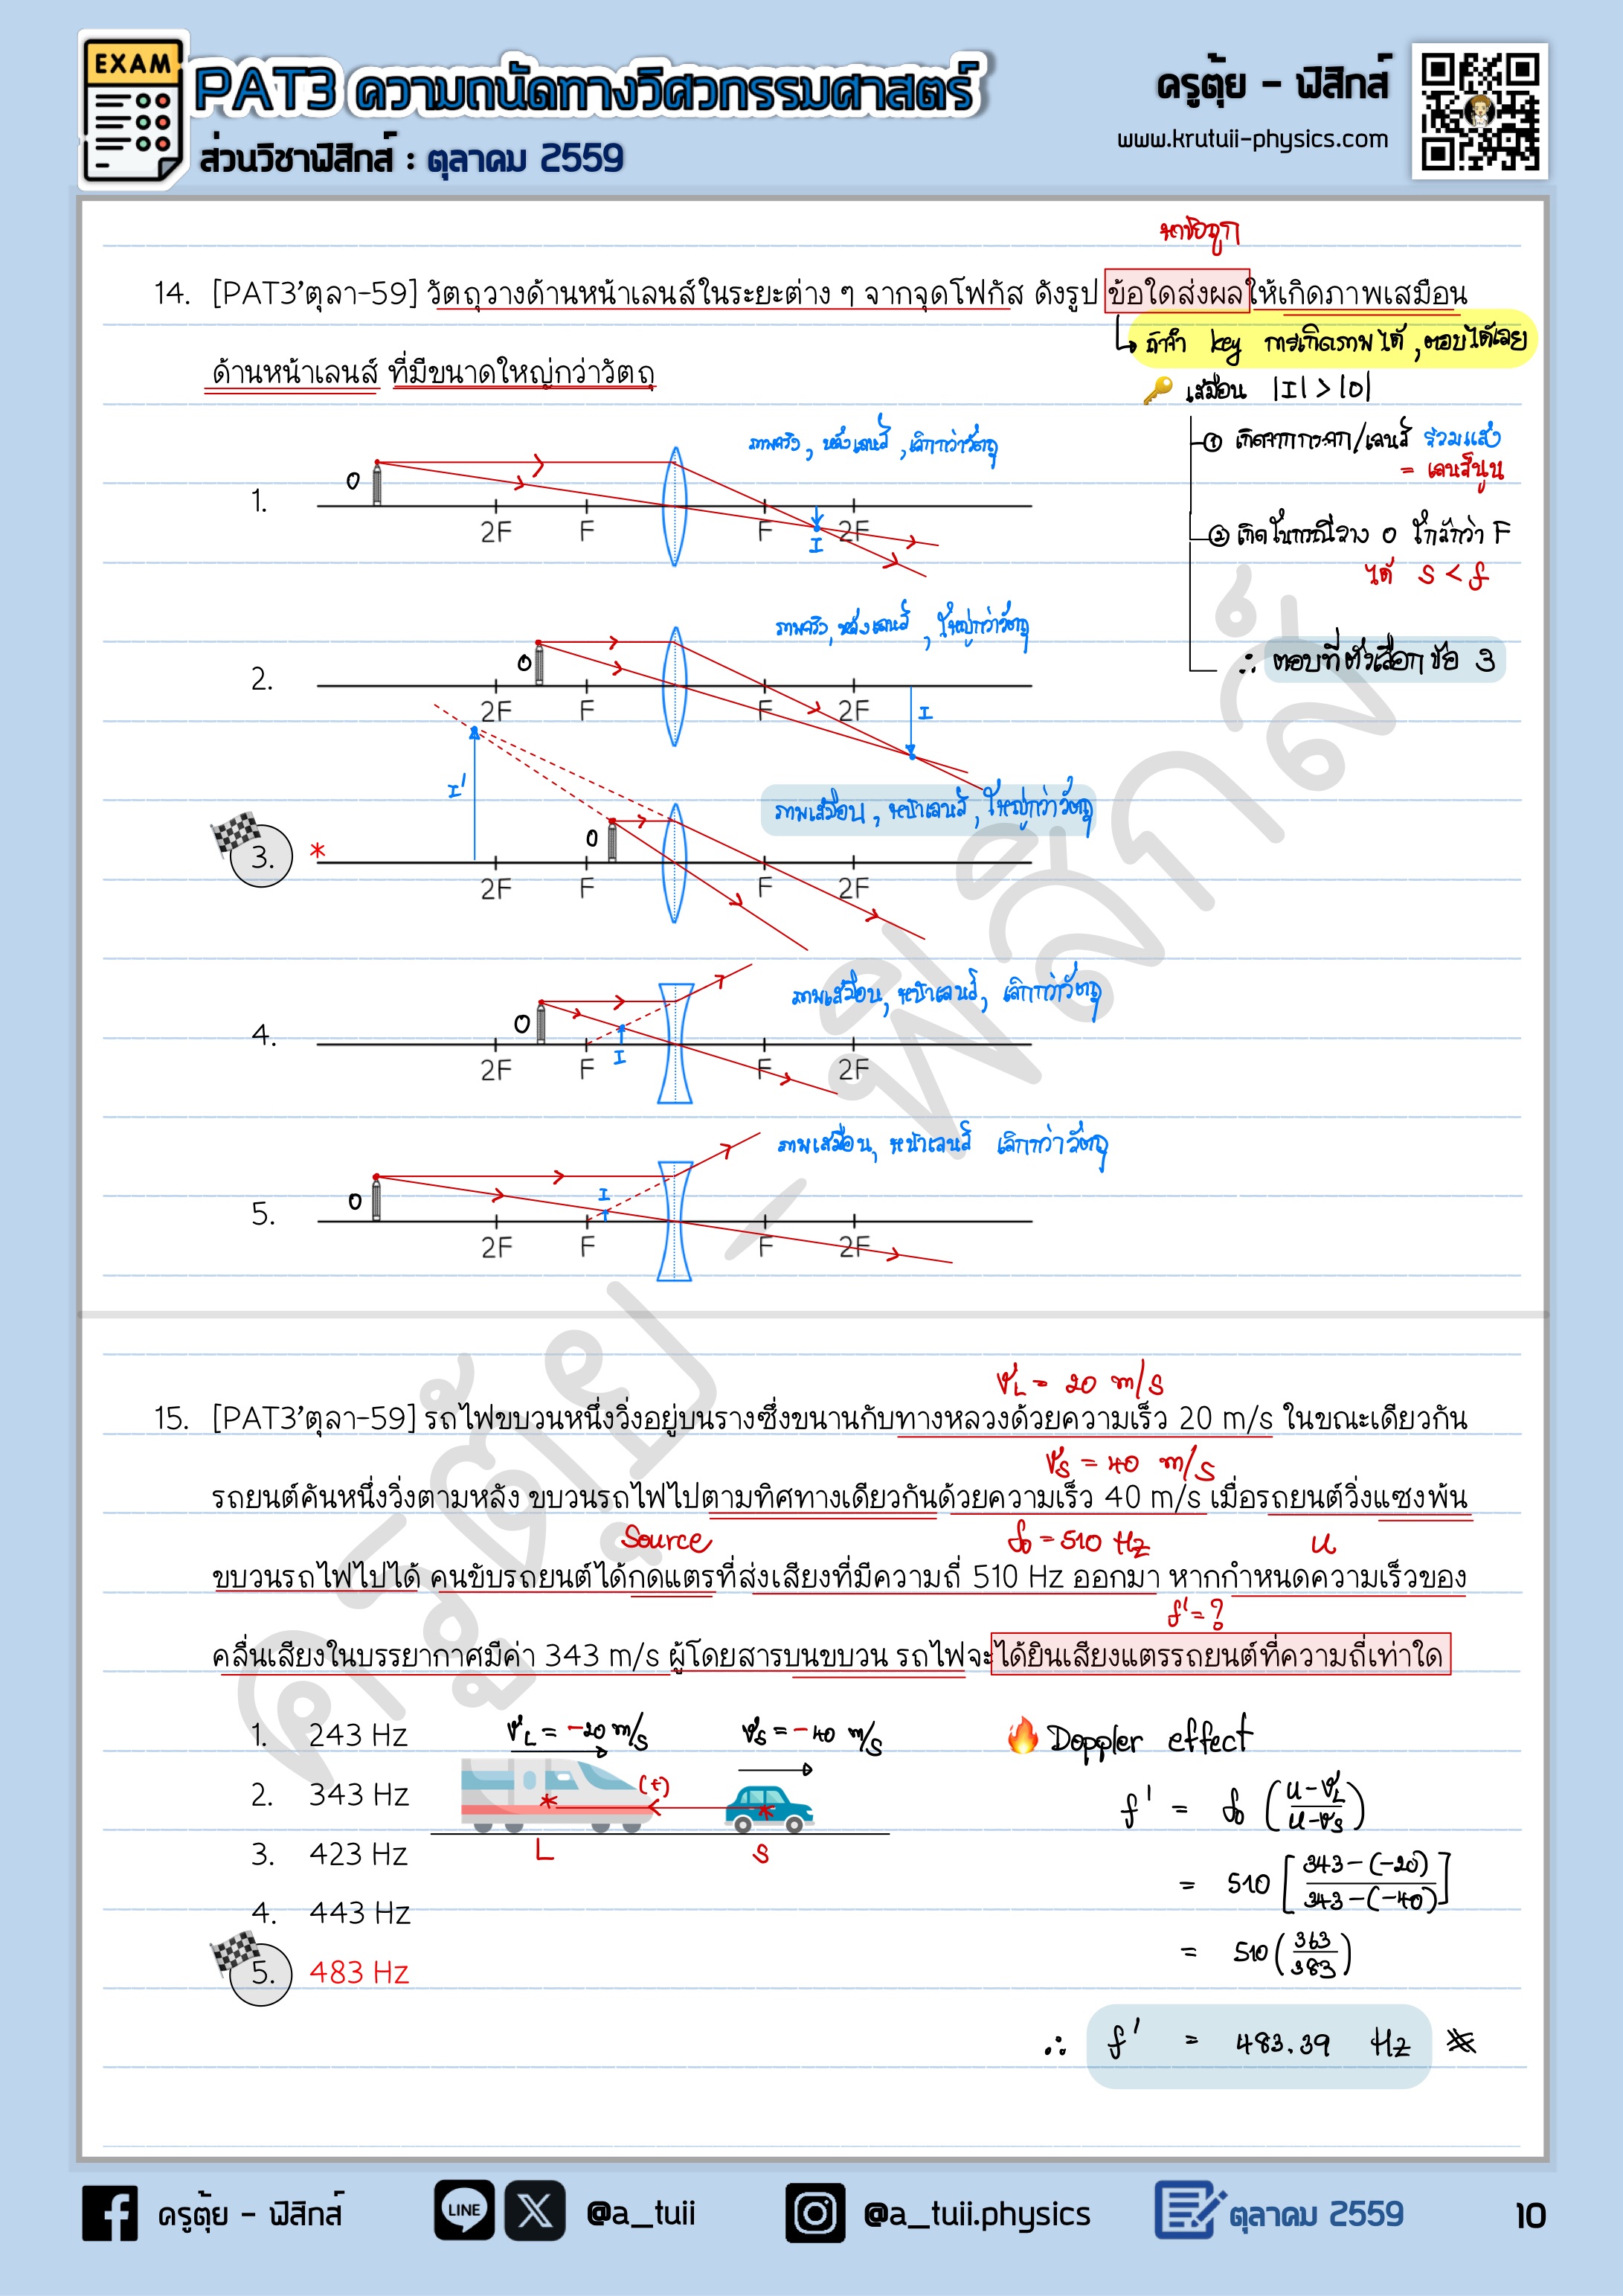 EXAM
PAT3 ความถนัดทางวิศวกรรมศาสตร์
ส่วนวิชาฟิสิกส์ : ตุลาคม 2559
ครูตุ้ย - ฟิสิกส์
www.krutuii-physics.com
หาข้อถูก
14. [PAT3'ตุลา-59] วัตถุวางด้านหน้าเลนส์ในระยะต่าง ๆ จากจุดโฟกัส ดังรูป ข้อใดส่งผลให้เกิดภาพเสมือน
ถ้าจำ key การเกิดภาพได้, ตอบได้เลย
ด้านหน้าเลนส์ ที่มีขนาดใหญ่กว่าวัตถุ
เสมือน |I| > |O|
① เกิดจากกระจก/เลนส์ รวมแสง
= เลนส์นูน
② เกิดในกรณีวาง O ใกล้กว่า F
ได้ s < f
∴ ตอบที่ตัวเลือกข้อ 3
ภาพจริง, หลังเลนส์, เล็กกว่าวัตถุ
O
1.
2F F F 2F
I
ภาพจริง, หลังเลนส์, ใหญ่กว่าวัตถุ
O
2.
2F F F 2F
I
I'
ภาพเสมือน, หน้าเลนส์, ใหญ่กว่าวัตถุ
O
3. *
2F F F 2F
ภาพเสมือน, หน้าเลนส์, เล็กกว่าวัตถุ
O
4.
I
2F F F 2F
ภาพเสมือน, หน้าเลนส์ เล็กกว่าวัตถุ
O
I
5.
2F F F 2F
v_L = 20 m/s
15. [PAT3'ตุลา-59] รถไฟขบวนหนึ่งวิ่งอยู่บนรางซึ่งขนานกับทางหลวงด้วยความเร็ว 20 m/s ในขณะเดียวกัน
v_s = 40 m/s
รถยนต์คันหนึ่งวิ่งตามหลัง ขบวนรถไฟไปตามทิศทางเดียวกันด้วยความเร็ว 40 m/s เมื่อรถยนต์วิ่งแซงพ้น
Source f₀ = 510 Hz u
ขบวนรถไฟไปได้ คนขับรถยนต์ได้กดแตรที่ส่งเสียงที่มีความถี่ 510 Hz ออกมา หากกำหนดความเร็วของ
f' = ?
คลื่นเสียงในบรรยากาศมีค่า 343 m/s ผู้โดยสารบนขบวน รถไฟจะได้ยินเสียงแตรรถยนต์ที่ความถี่เท่าใด
1. 243 Hz
2. 343 Hz
3. 423 Hz
4. 443 Hz
5. 483 Hz
v_L = -20 m/s v_s = -40 m/s
(+)
* *
L S
Doppler effect
f' = f₀ ( (u - v_L) / (u - v_s) )
= 510 [ (343 - (-20)) / (343 - (-40)) ]
= 510 ( 363 / 383 )
∴ f' = 483.39 Hz
ครูตุ้ย - ฟิสิกส์
ครูตุ้ย - ฟิสิกส์
LINE
@a_tuii
@a_tuii.physics
ตุลาคม 2559
10